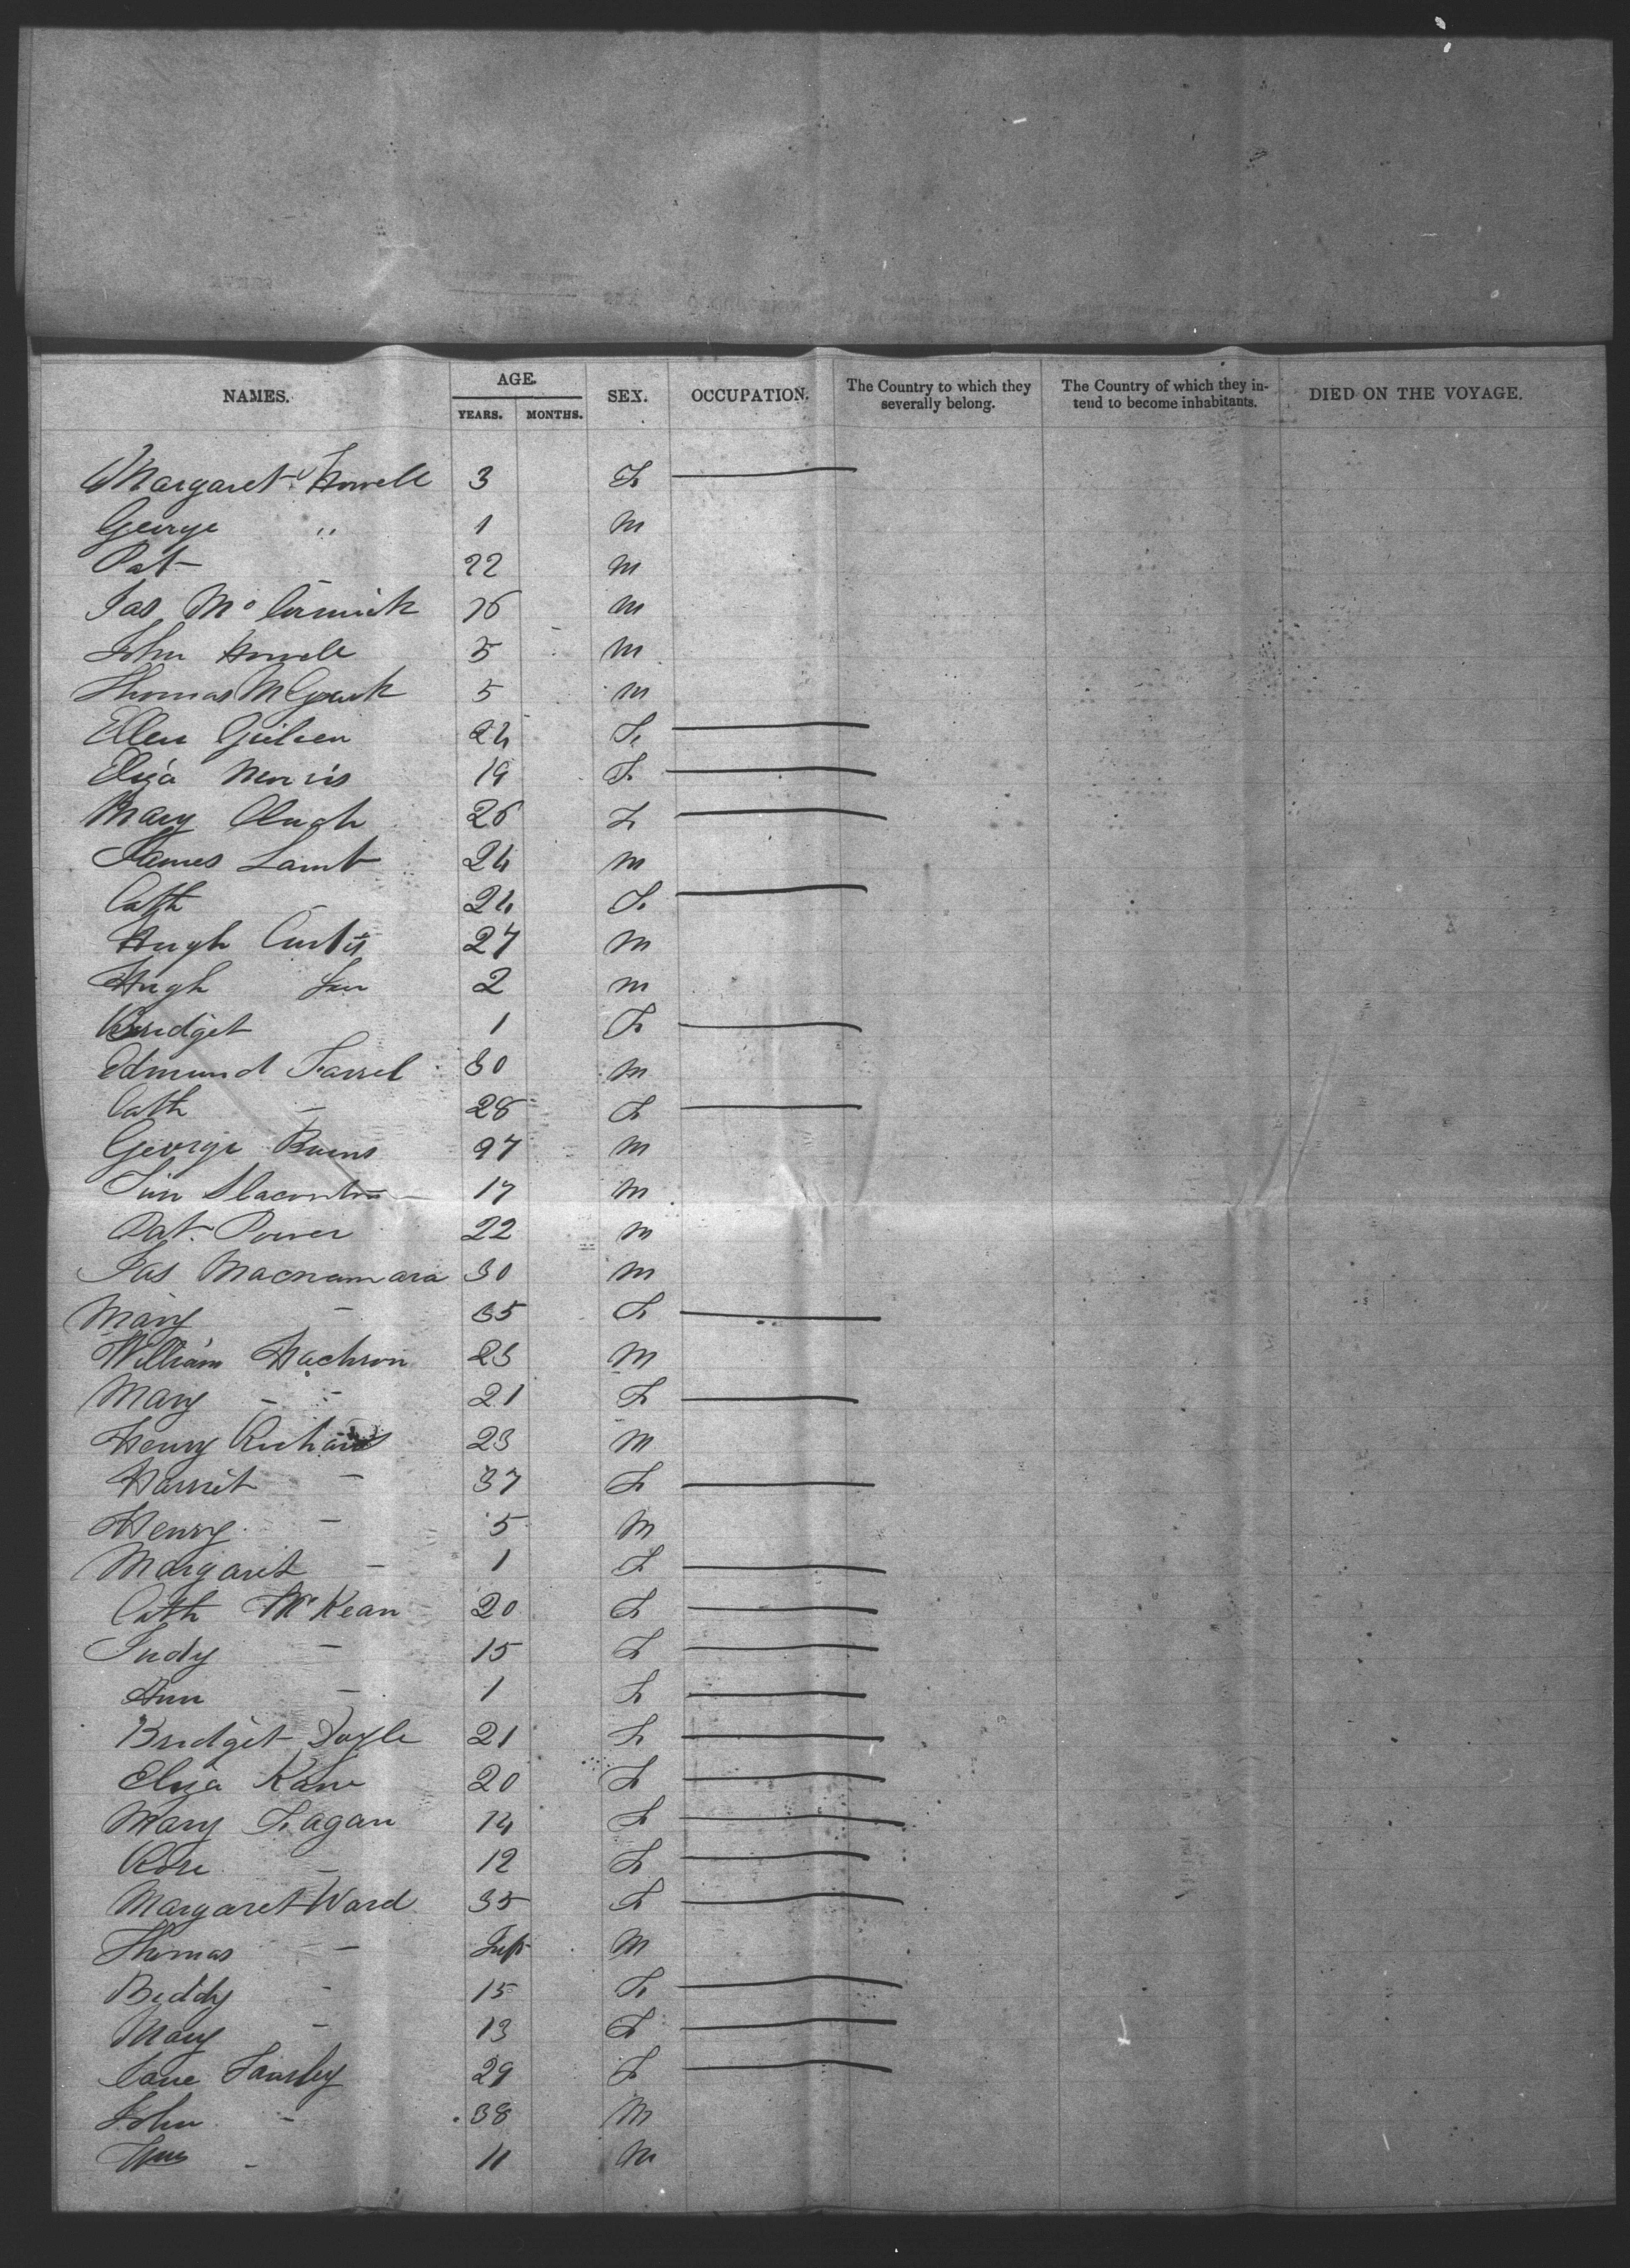 NAMES. AGE. SEX. OCCUPATION. The Country to which they severally belong. The Country of which they in-tend to become inhabitants. DIED ON THE VOYAGE.
YEARS. MONTHS.
Margaret Howell 3 F
George " 1 M
Pat - 22 M
Jas McCormick 16 M
John Howell 5 M
Thomas 5 M
Ellen 24 F
Eliza Morris 19 F
Mary 26 F
James Lamb 24 M
Cath - 24 F
Hugh Curtis 27 M
Hugh 2 M
Bridget 1 F
Edmund Farrel 30 M
Cath - 28 F
George Burns 27 M
Tim 17 M
Pat Power 22 M
Jas Macnamara 30 M
Mary - 35 F
William 23 M
Mary - - 21 F
Henry Richards 23 M
Harriet - 37 F
Henry - 5 M
Margaret - 1 F
Cath McKean 20 F
Judy - 15 F
Ann - 1 F
Bridget Doyle 21 F
Eliza Kane 20 F
Mary Fagan 14 F
Rose - 12 F
Margaret Ward 35 F
Thomas - Inft M
Biddy - 15 F
Mary - 13 F
Jane 29 F
John - 38 M
Wm - 11 M